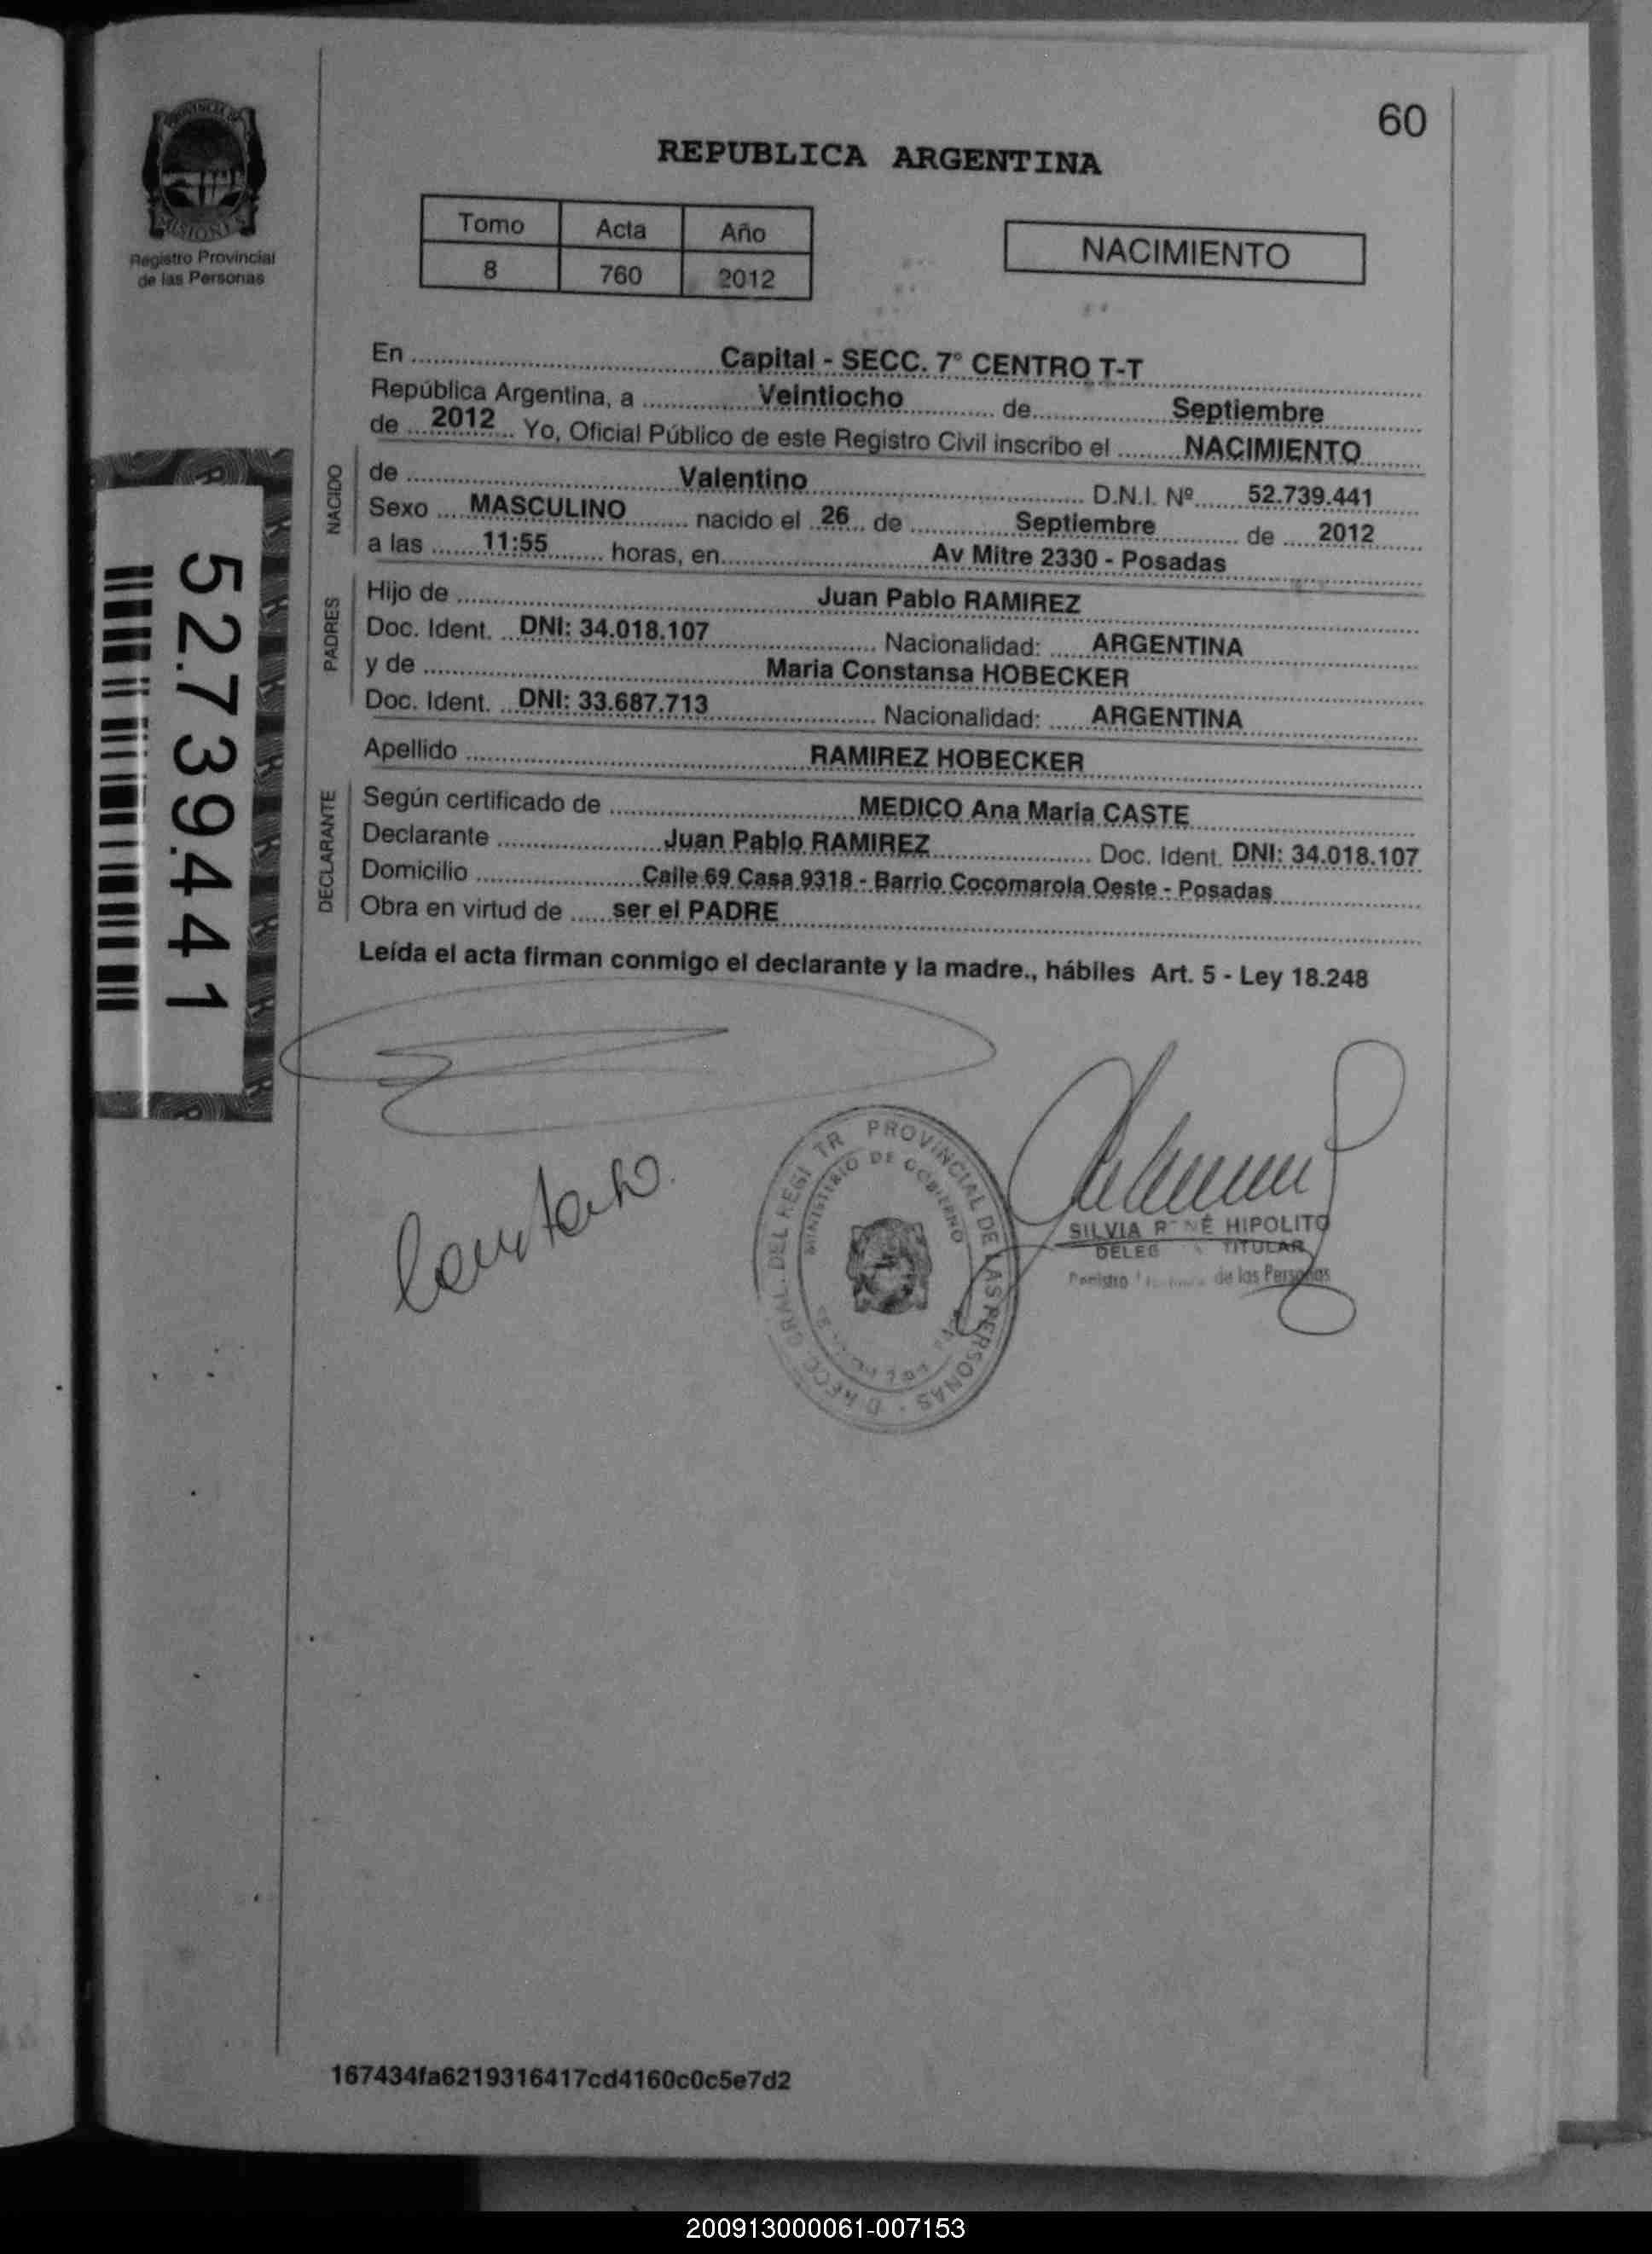 60
REPUBLICA ARGENTINA
PROVINCIA DE
MISIONES
Registro Provincial
de las Personas
Tomo Acta Año
8 760 2012
NACIMIENTO
En Capital - SECC. 7° CENTRO T-T
República Argentina, a Veintiocho de Septiembre
de 2012 Yo, Oficial Público de este Registro Civil inscribo el NACIMIENTO
NACIDO
de Valentino D.N.I. Nº 52.739.441
Sexo MASCULINO nacido el 26 de Septiembre de 2012
a las 11:55 horas, en Av Mitre 2330 - Posadas
PADRES
Hijo de Juan Pablo RAMIREZ
Doc. Ident. DNI: 34.018.107 Nacionalidad: ARGENTINA
y de Maria Constansa HOBECKER
Doc. Ident. DNI: 33.687.713 Nacionalidad: ARGENTINA
Apellido RAMIREZ HOBECKER
DECLARANTE
Según certificado de MEDICO Ana María CASTE
Declarante Juan Pablo RAMIREZ Doc. Ident. DNI: 34.018.107
Domicilio Calle 69 Casa 9318 - Barrio Cocomarola Oeste - Posadas
Obra en virtud de ser el PADRE
Leída el acta firman conmigo el declarante y la madre., hábiles Art. 5 - Ley 18.248
52.739.441
PROVINCIAL DE LAS PERSONAS
GRAL. DEL
MINISTERIO DE GOBIERNO
SILVIA HIPOLITO
TITULAR
de las Personas
167434fa6219316417cd4160c0c5e7d2
200913000061-007153